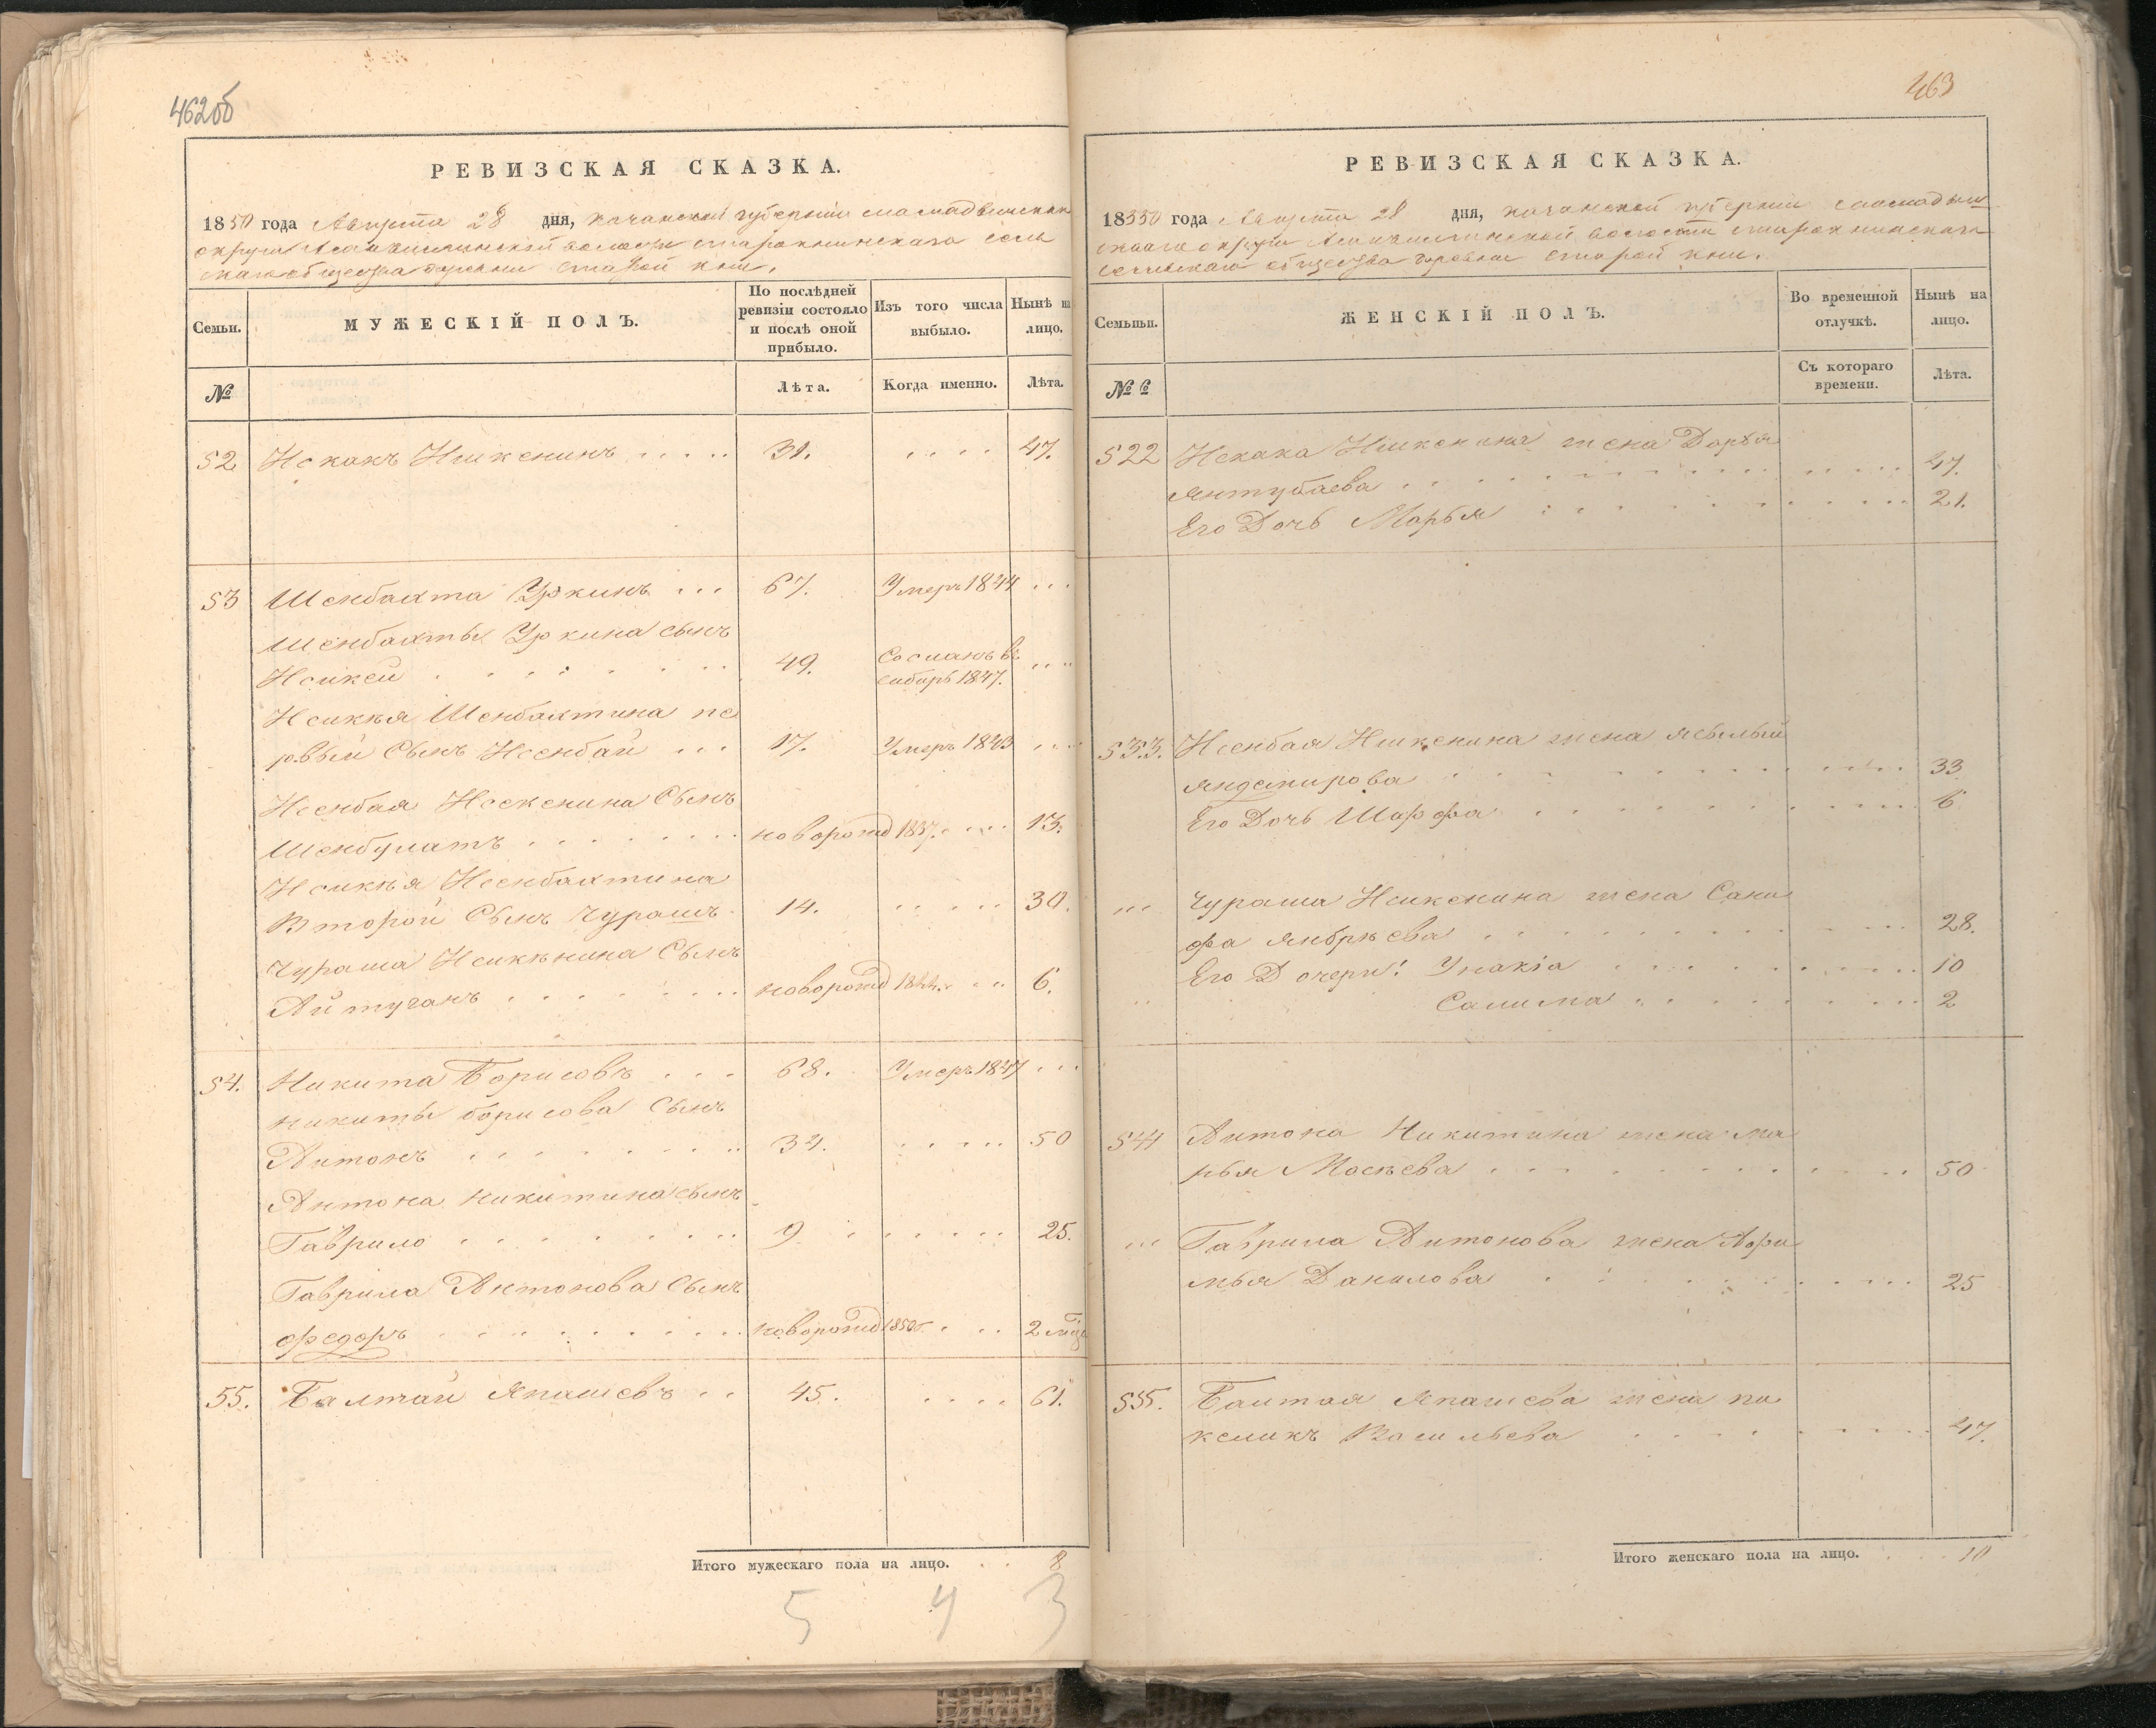 462об
РЕВИЗСКАЯ СКАЗКА.
1850 года Августа 28 дня, казанской губернии
округи волости староклинскаго сель
скаго общества деревни старой кли.
Семьи.
МУЖЕСКІЙ ПОЛЪ.
По послѣдней ревизіи состояло и послѣ оной прибыло.
Изъ того числа выбыло.
Нынѣ на лицо.
№
Лѣта.
Когда именно.
Лѣта.
52 Искакъ Ишкенинъ 31. 47.
53 Шенбахта Уркинъ 67. Умеръ 1844
Шенбахты Уркина сынъ
Исикей 49. Сосланъ въ
сибирь 1847.
Исикѣя Шенбахтина пе
рвый Сынъ Исенбай 17. Умеръ 1843
Исенбая Исекенина Сынъ
Шенбулатъ новорожд 1837. 13.
Исикѣя Исенбахтина
Второй Сынъ Чурашъ 14. 30.
Чураша Исикѣнина Сынъ
Айтуганъ новорожд 1844. 6.
54. Никита Борисовъ 68. Умеръ 1847
никиты борисова Сынъ
Антонъ 34. 50
Антона никитина сынъ
Гаврило 9 25.
Гаврила Антонова Сынъ
федоръ новорожд 1850г. 2
55. Балтай Япашевъ 45. 61.
Итого мужескаго пола на лицо. 8
5 4 3
463
РЕВИЗСКАЯ СКАЗКА.
1850 года Августа 28 дня, казанской губерніи
скаго округи волости старохлинскаго
сельскаго общества деревни старой кли.
Семьи.
ЖЕНСКІЙ ПОЛЪ.
Во временной отлучкѣ.
Нынѣ на лицо.
№ 6
Съ котораго времени.
Лѣта.
522 Искака Ишкенина жена Дарья
янтубаева 47.
Его Дочь Марья 21.
533. Исенбая Ишкенина жена
яндемирова 33
Его Дочь Шарфа 6
Чураша Исикенина жена Сани
фа янбрѣева 28.
Его Дочери: Унакіа 10
Салима 2
544 Антона Никитина жена ма
рья Мосѣева 50
Гаврила Антонова жена
Данилова 25
555. Балтая Япашева жена па
Васильева 47.
Итого женскаго пола на лицо. 10